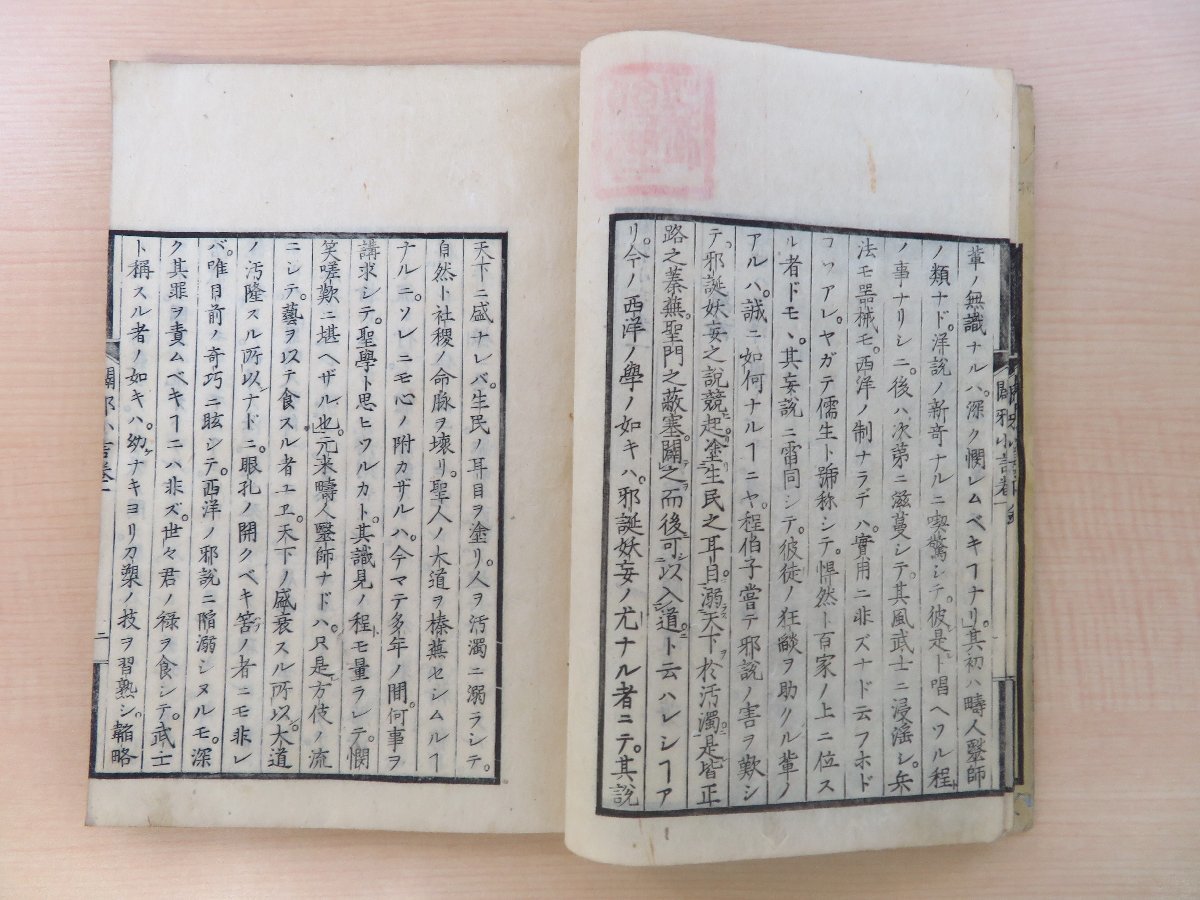 輩ノ無識ナルハ。深ク憫レムベキヿナリ。」其初ハ疇人毉師
ノ類ナド。洋説ノ新奇ナルニ喫驚シテ。彼是ト唱ヘツル程
ノ事ナリシニ。後ハ次第ニ滋蔓シテ。其風武士ニ浸滛シ。兵
法モ器械モ。西洋ノ制ナラデハ。實用ニ非ズナド云フホド
コソアレ。ヤガテ儒生ト號称シテ。悍然ト百家ノ上ニ位ス
ル者ドモ、其妄説ニ雷同シテ。彼徒ノ狂燄ヲ助クル輩ノ
アルハ。誠ニ如何ナルヿニヤ。程伯子嘗テ邪説ノ害ヲ歎シ
テ。邪誕妖妄之説競起。塗生民之耳目。溺天下於汚濁。是皆正
路之蓁蕪。聖門之蔽塞。闢之而後可以入道ト云ハレシヿア
リ。今ノ西洋ノ學ノ如キハ。邪誕妖妄ノ尤ナル者ニテ。其説
闢邪小言卷一
天下ニ盛ナレバ。生民ノ耳目ヲ塗リ。人ヲ汚濁ニ溺ラシテ。
自然ト社稷ノ命脉ヲ壞リ。聖人ノ大道ヲ榛蕪セシムルヿ
ナルニ。ソレニモ心ノ附カザルハ。今マテ多年ノ間。何事ヲ
講求シテ。聖學ト思ヒツルカト。其識見ノ程モ量ラレテ。憫
笑嗟歎ニ堪ヘザル也。」元来疇人毉師ナドハ。只是方伎ノ流
ニシテ。藝ヲ以テ食スル者ユヱ。天下ノ盛衰スル所以。大道
ノ汚隆スル所以ナドニ。眼孔ノ開クベキ筈ノ者ニモ非レ
バ。唯目前ノ奇巧ニ眩シテ。西洋ノ邪説ニ陷溺シヌルモ。深
ク其罪ヲ責ムベキヿニハ非ズ。世々君ノ祿ヲ食シテ。武士
ト稱スル者ノ如キハ。幼ナキヨリ刀槊ノ技ヲ習熟シ。韜略
闢邪小言卷一
二